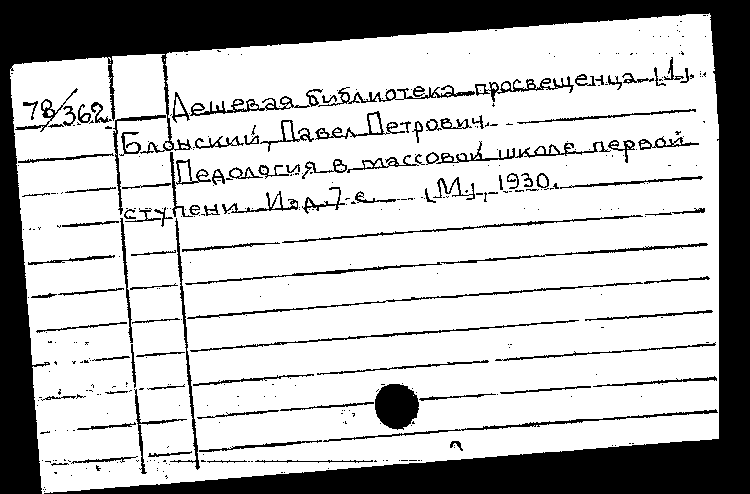 78/362 Дешевая библиотека просвещенца [1].
Блонский, Павел Петрович.
Педология в массовой школе первой
ступени. Изд. 7-е. [М.], 1930.